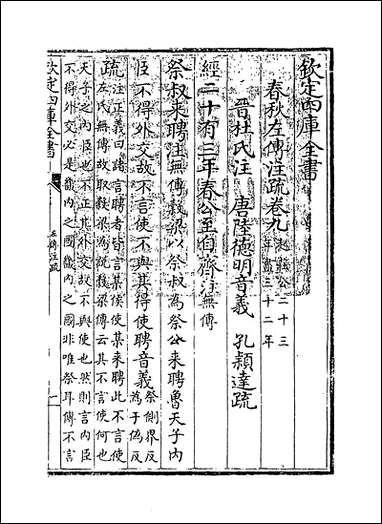 欽定四庫全書
春秋左傳注疏卷九 起莊公二十三年盡三十二年
晉杜氏注 唐陸德明音義 孔穎達疏
經二十有三年春公至自齊注無傳
祭叔來聘注無傳穀梁以祭叔為祭公來聘魯天子內
臣不得外交故不言使不與其得使聘音義祭側界反為于偽反
疏注正義曰諸言聘者皆言某侯使某來聘此不言使
左氏無傳故取穀梁為說穀梁傳云其不言使何也
天子之內臣也不正其外交故不與使也然則言內臣
不得外交必是畿內之國畿內之國非唯祭耳傳不言
欽定四庫全書
左傳注疏
一